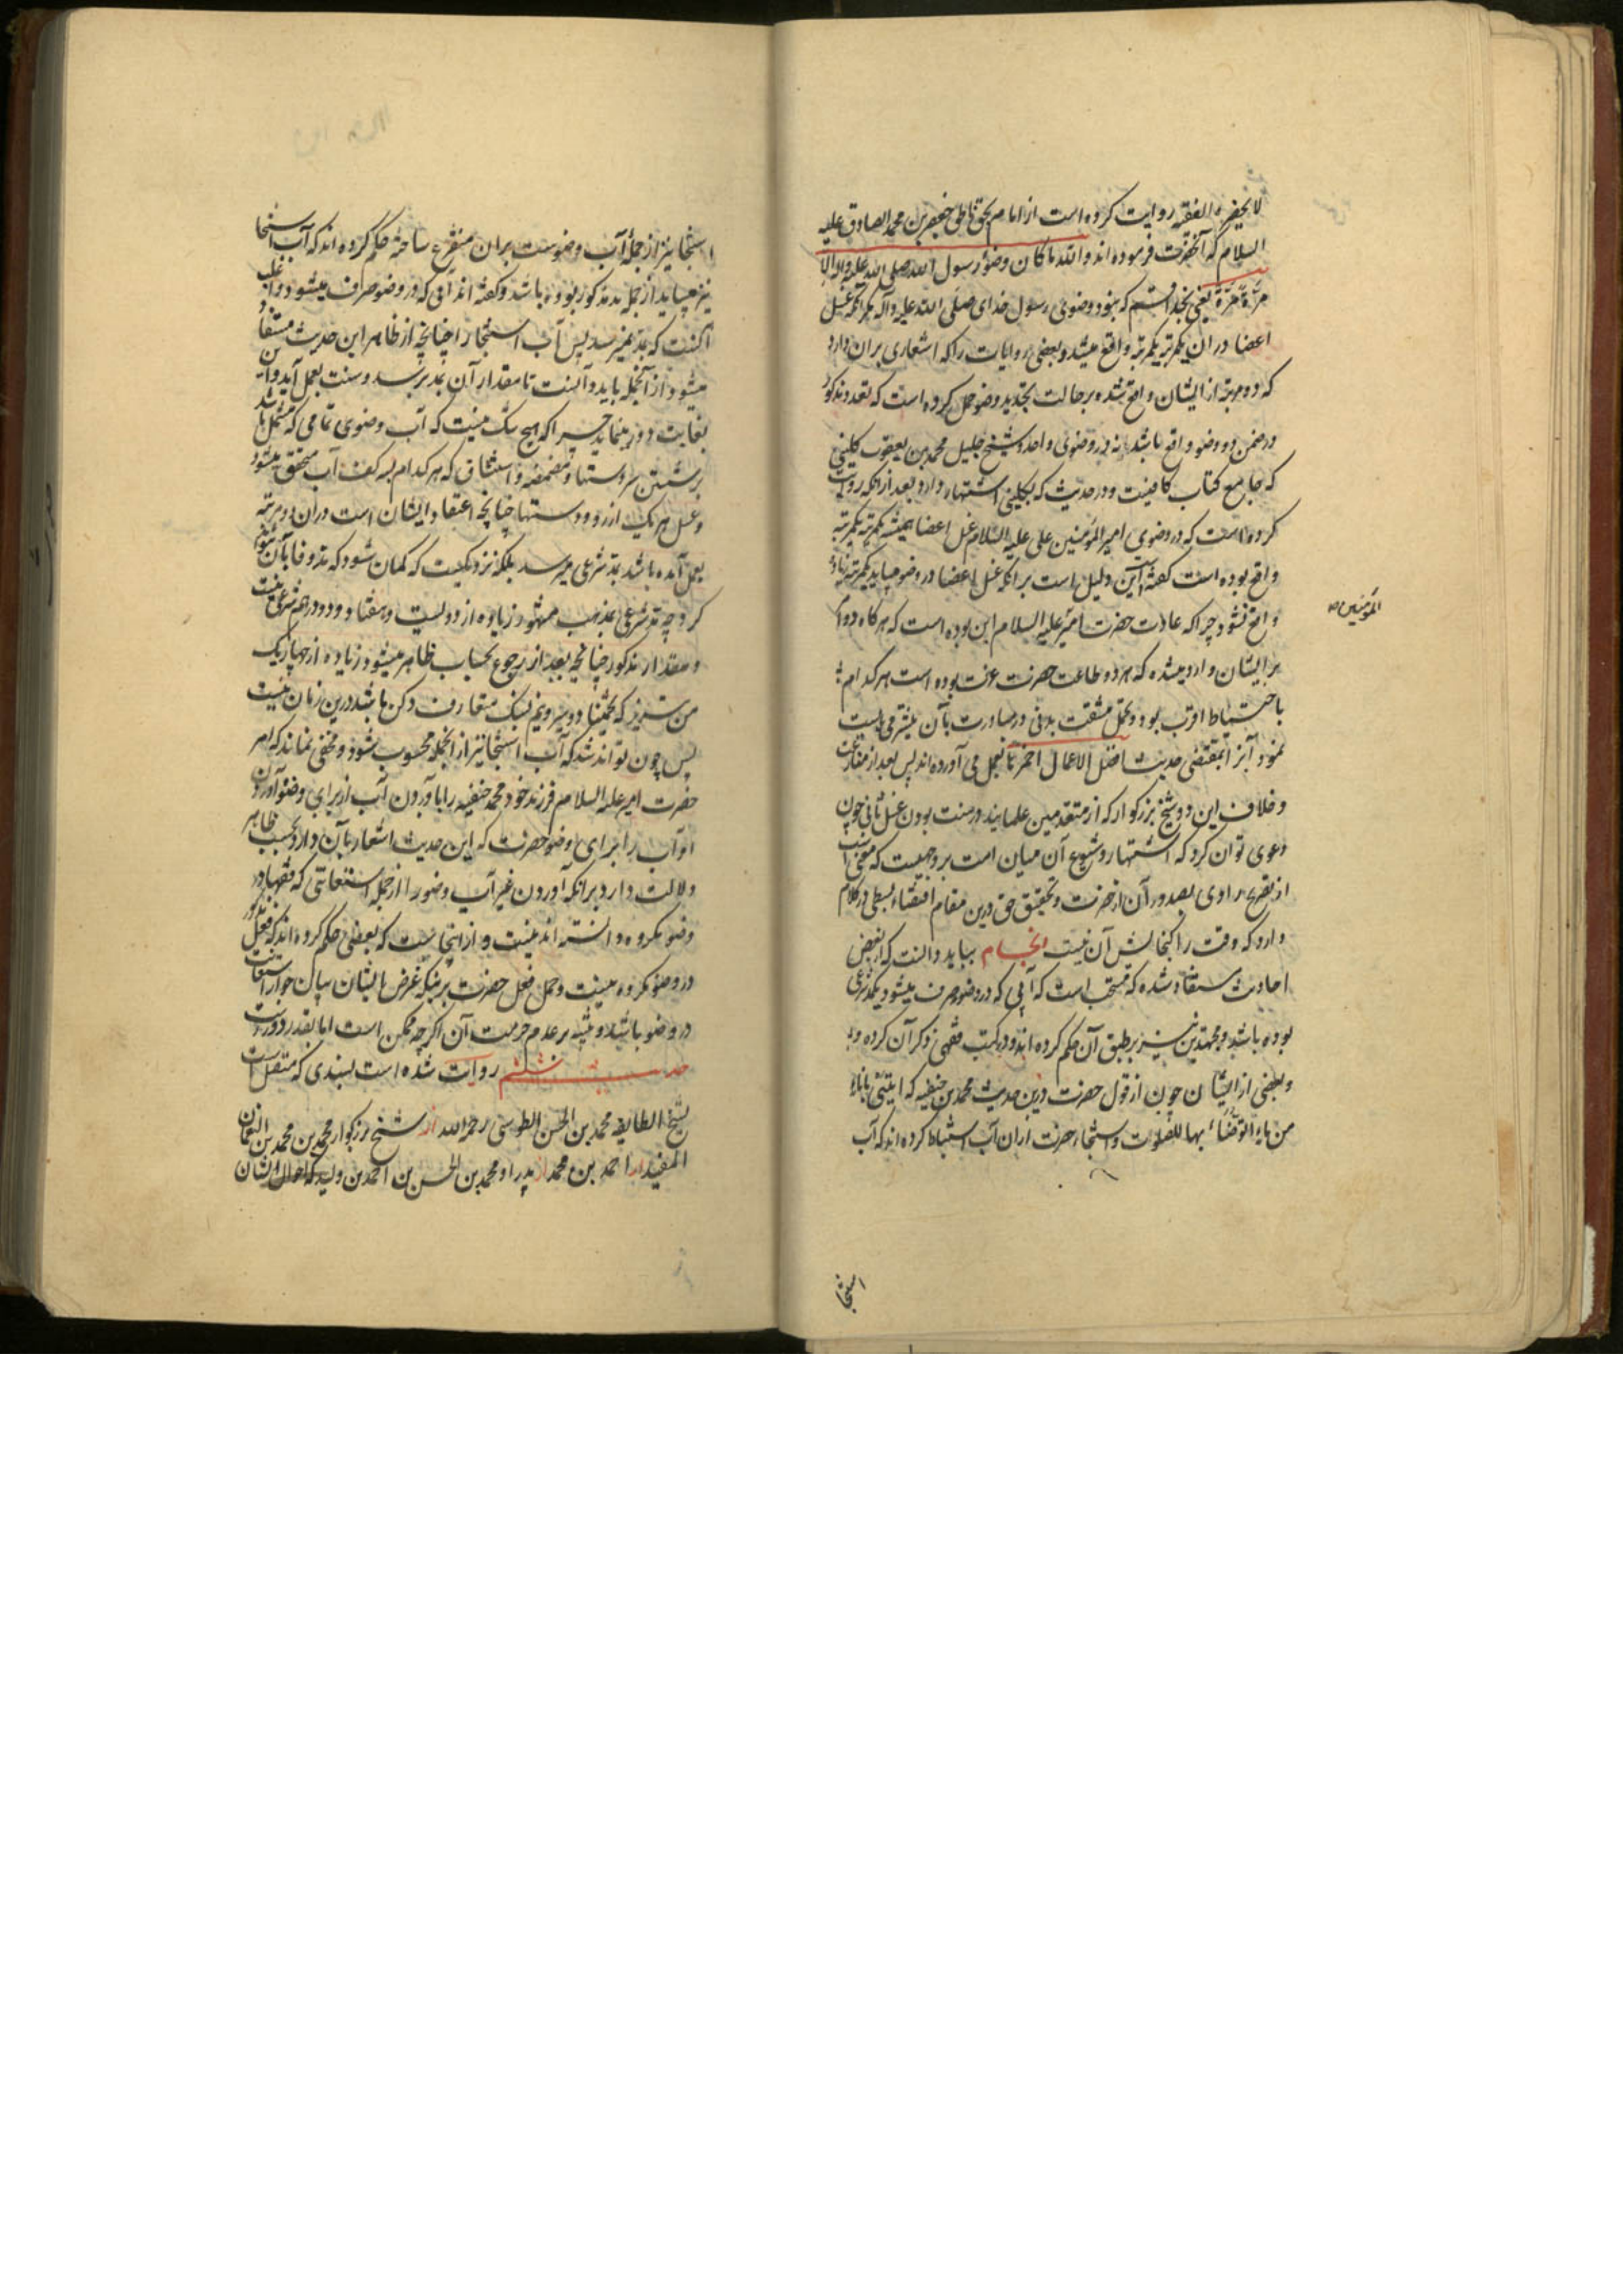 لا یحضره الفقیه روایت کرده است از امام بحق ناطق جعفر بن محمد الصادق علیه
السلام که آنحضرت فرموده اند والله ما کان وضوء رسول الله صلی الله علیه واله الا
مرّة مرّة یعنی بخدا قسم که نبود وضوی رسول خدای صلی الله علیه وآله مگر آنکه غسل
اعضا در آن یکمرتبه یکمرتبه واقع میشد و بعضی روایات را که اشعاری بران دارد
که دو مرتبه از ایشان واقع شده بر حالت تجدید وضو حمل کرده است که تعدد مذکور
در ضمن دو وضو واقع باشد نه در وضوی واحد و شیخ جلیل محمد بن یعقوب کلینی
که جامع کتاب کافیست و در حدیث که بکلینی اشتهار دارد بعد از آنکه روایت
کرده است که در وضوی امیر المؤمنین علی علیه السلام غسل اعضا همیشه یکمرتبه یکمرتبه
واقع بوده است گفته این دلیل است بر آنکه غسل اعضا در وضو میباید یکمرتبه زیاده
واقع نشود چرا که عادت حضرت امیر علیه السلام این بوده است که هر گاه دو امر
المؤمنین
بر ایشان وارد میشده که هر دو طاعت حضرت عزت بوده است هر کدام
باحتیاط اقرب بود و تحمل مشقت بدنی در مبادرت بآن بیشتر می بایست
نمود آنرا بمقتضی حدیث افضل الاعمال احمزها بعمل می آورده اند پس بعد از
و خلاف این دو شیخ بزرگوار که از متقدمین علمایند در سنت بودن غسل ثانی چون
دعوی توان کرد که اشتهار و شیوع آن میان امت بر وجهیست که
از تصریح راوی بصدور آن از حضرت و تحقیق حق درین مقام اقتضاء بسطی در کلام
دارد که وقت را گنجایش آن نیست انجام بباید دانست که از بعض
احادیث مستفاد شده که مستحب است که آبی که در وضو صرف میشود یکمد شرعی
بوده باشد و مجتهدین نیز بر طبق آن حکم کرده اند و در کتب فقهی ذکر آن کرده
و بعضی از ایشان چون از قول حضرت درین حدیث محمد بن حنفیه که ایتنی باناء
من ماء اتوضاء بها للصلوت و استنجاء حضرت از ان آب استنباط کرده اند که آب
استنجا
استنجا نیز از جملهٔ آب وضوست بران متفرع ساخته حکم کرده اند که آب استنجا
نیز میباید از جمله مد مذکور بوده باشد و گفته اند آبی که در وضو صرف میشود و اغلب
آنست که بمد نمیرسد پس آب استنجا را چنانچه از ظاهر این حدیث مستفاد
میشود از آنجمله باید دانست تا مقدار آن بمد برسد و سنت بعمل آید و این
بغایت دور مینماید چرا که هیچ شک نیست که آب وضوی تمامی که مشتمل باشد
بر شستن سر دستها و مضمضه و استنشاق که هر کدام بسه کف آب متحقق میشود
و غسل هر یک از رو و دستها چنانچه اعتقاد ایشان است در ان دو مرتبه
بعمل آمده باشد بمد شرعی میرسد بلکه نزدیکست که گمان شود که مد وفا بآن نتواند
کرد چه مد شرعی بمذهب مشهور زیاده از دویست و هفتاد و دو درهم شرعی نیست
و مقدار مذکور چنانچه بعد از رجوع بحساب ظاهر میشود زیاده از چهار یک
من تبریز که تخمیناً دو سیر و نیم بسنگ متعارف دکن باشد درین زمان نیست
پس چون تواند شد که آب استنجا نیز از آنجمله محسوب شود و مخفی نماند که امر
حضرت امیر علیه السلام فرزند خود محمد حنفیه را بآوردن آب از برای وضو و آوردن
او آب را برای وضو حضرت که این حدیث اشعار بآن دارد بحسب ظاهر
دلالت دارد بر آنکه آوردن غیر آب وضو را از جمله استعانتی که فقها در
وضو مکروه دانسته اند نیست و از اینجاست که بعضی حکم کرده اند که فعل مذکور
در وضو مکروه نیست و حمل فعل حضرت بر اینکه غرض ایشان بیان جواز استعانت
در وضو باشد و تنبیه بر عدم حرمت آن اگرچه ممکن است اما بقدر دور است
حدیث ششم روایت شده است بسندی که متصل است
بشیخ الطایفه محمد بن الحسن الطوسی رحمه الله از شیخ بزرگوار محمد بن محمد بن النعمان
المفید از احمد بن محمد از پدر او محمد بن الحسن بن احمد بن ولید که احوال ایشان